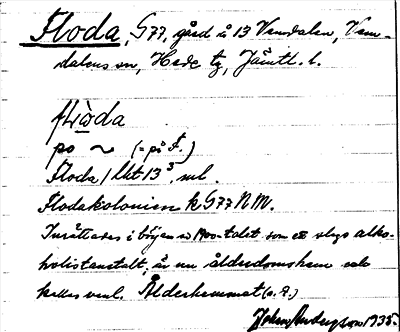 Floda, G77, gård i 13 Vemdalen, Vem-
dalens sn, Hede tg, Jämtl. l.
flɷ̀da
po ~ (= på F.)
Floda, 1 Mt 13³, ml.
Flodakolonien k G77 N M.
Inrättades i början av 1900-talet som en slags alko-
holistanstalt, är nu ålderdomshem och
kallas vanl. Ålderhemmet (o. A.)
Johan Anderson 1935.